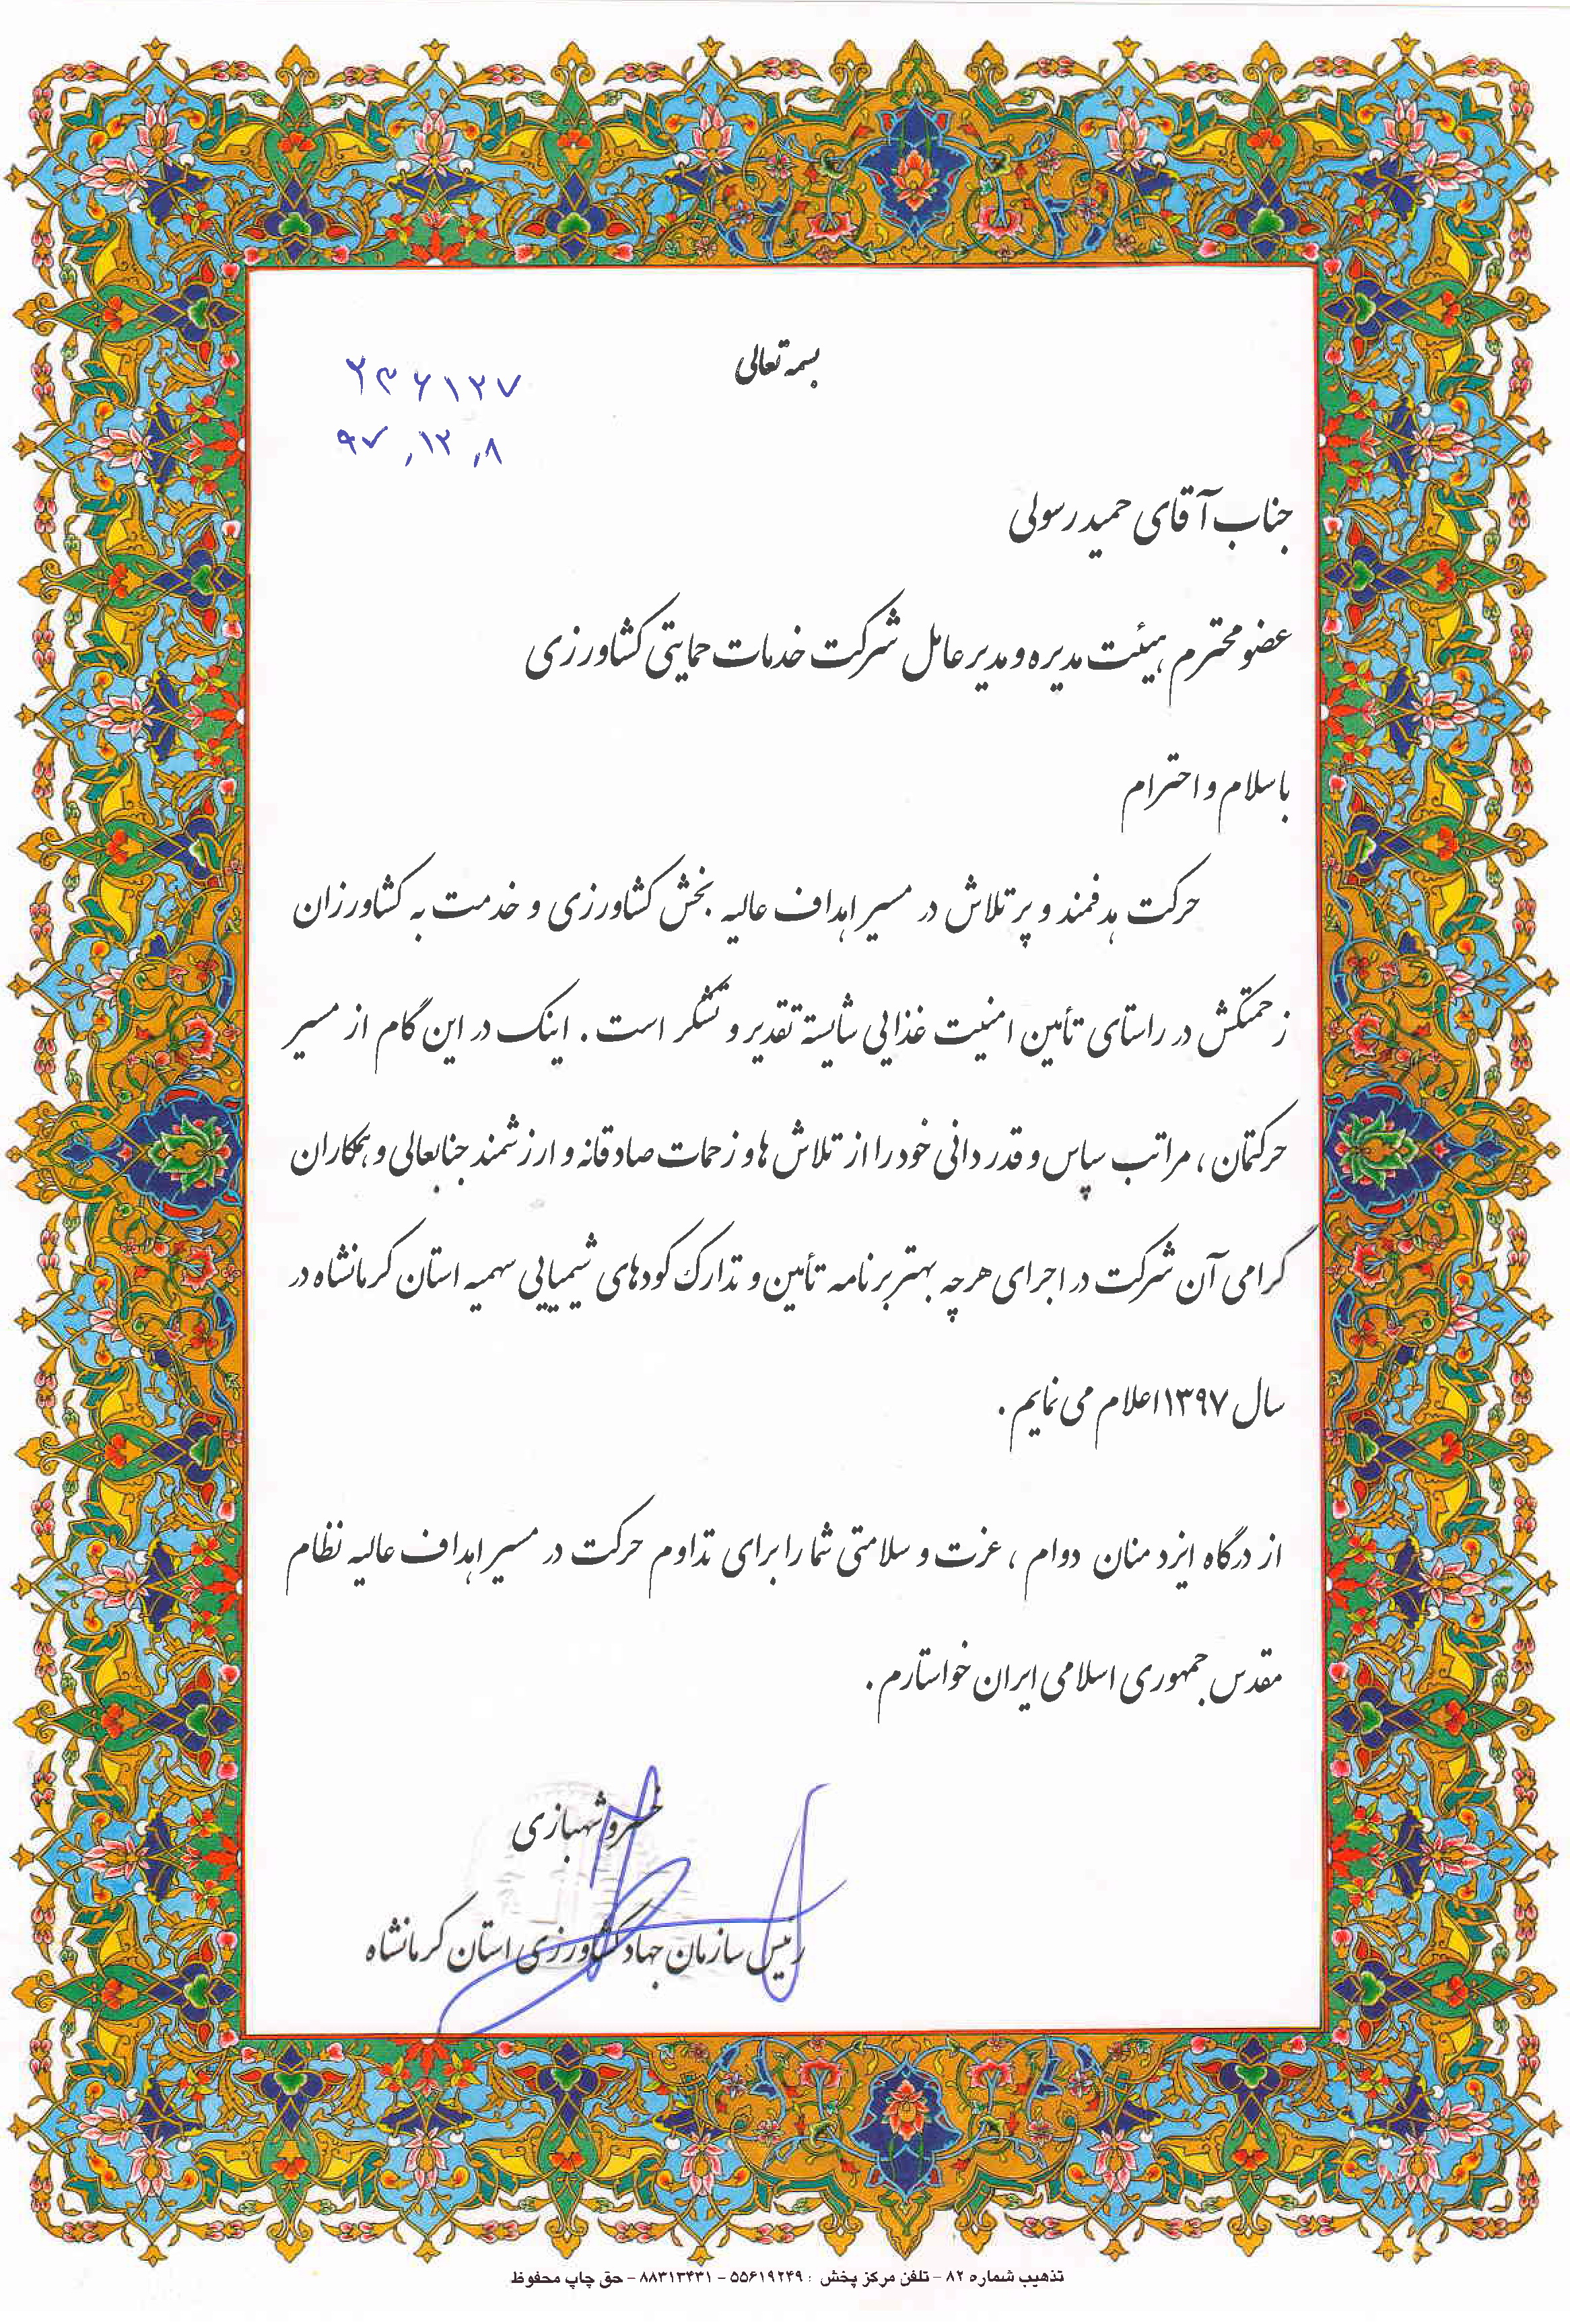 بسمه تعالی
۲۳۶۱۲۷
۹۷,۱۲,۸
جناب آقای حمید رسولی
عضو محترم هیئت مدیره و مدیرعامل شرکت خدمات حمایتی کشاورزی
با سلام و احترام
حرکت هدفمند و پرتلاش در مسیر اهداف عالیه بخش کشاورزی و خدمت به کشاورزان
زحمتکش در راستای تأمین امنیت غذایی شایسته تقدیر و تشکر است . اینک در این گام از مسیر
حرکتمان ، مراتب سپاس و قدردانی خود را از تلاش ها و زحمات صادقانه و ارزشمند جنابعالی و همکاران
گرامی آن شرکت در اجرای هرچه بهتر برنامه تأمین و تدارک کودهای شیمیایی سهمیه استان کرمانشاه در
سال ۱۳۹۷ اعلام می نمایم .
از درگاه ایزد منان دوام ، عزت و سلامتی شما را برای تداوم حرکت در مسیر اهداف عالیه نظام
مقدس جمهوری اسلامی ایران خواستارم .
خسرو شهبازی
رئیس سازمان جهاد کشاورزی استان کرمانشاه
تذهیب شماره ۸۲ - تلفن مرکز پخش : ۵۵۶۱۹۲۴۹ - ۸۸۳۱۳۴۳۱ - حق چاپ محفوظ